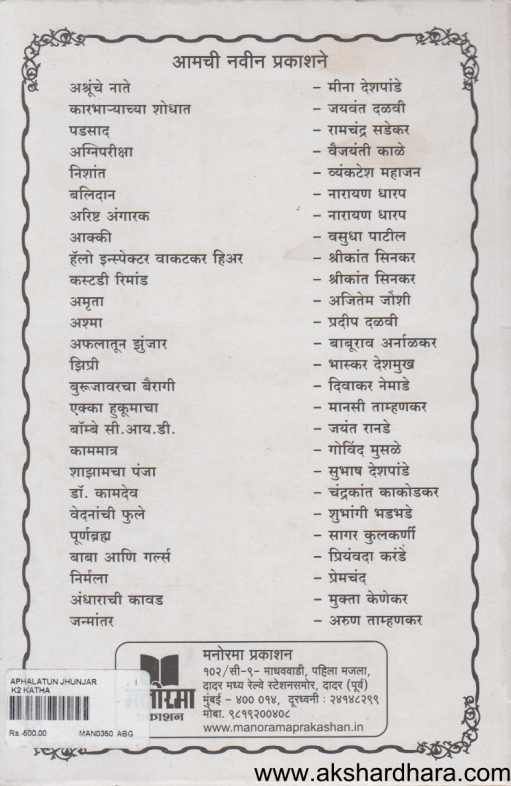 आमची नवीन प्रकाशने
अश्रूंचे नाते – मीना देशपांडे
कारभाऱ्याच्या शोधात – जयवंत दळवी
पडसाद – रामचंद्र सडेकर
अग्निपरीक्षा – वैजयंती काळे
निशांत – व्यंकटेश महाजन
बलिदान – नारायण धारप
अरिष्ट अंगारक – नारायण धारप
आक्की – वसुधा पाटील
हॅलो इन्स्पेक्टर वाकटकर हिअर – श्रीकांत सिनकर
कस्टडी रिमांड – श्रीकांत सिनकर
अमृता – अजितेम जौशी
अश्मा – प्रदीप दळवी
अफलातून झुंजार – बाबूराव अर्नाळकर
झिप्री – भास्कर देशमुख
बुरूजावरचा बैरागी – दिवाकर नेमाडे
एक्का हुकूमाचा – मानसी ताम्हणकर
बॉम्बे सी.आय.डी. – जयंत रानडे
काममात्र – गोविंद मुसळे
शाझामचा पंजा – सुभाष देशपांडे
डॉ. कामदेव – चंद्रकांत काकोडकर
वेदनांची फुले – शुभांगी भडभडे
पूर्णब्रह्म – सागर कुलकर्णी
बाबा आणि गर्ल्स – प्रियंवदा करंडे
निर्मला – प्रेमचंद
अंधाराची कावड – मुक्ता केणेकर
जन्मांतर – अरुण ताम्हणकर
मनोरमा प्रकाशन
१०२/सी-९- माधववाडी, पहिला मजला,
दादर मध्य रेल्वे स्टेशनसमोर, दादर (पूर्व)
मुंबई – ४०० ०१४, दूरध्वनी : २४१४८२९९
मोबा. ९८१९२००४०८
www.manoramaprakashan.in
APHALATUN JHUNJAR
K2 KATHA
Rs.-600.00 MAN0350 ABG
www.akshardhara.com